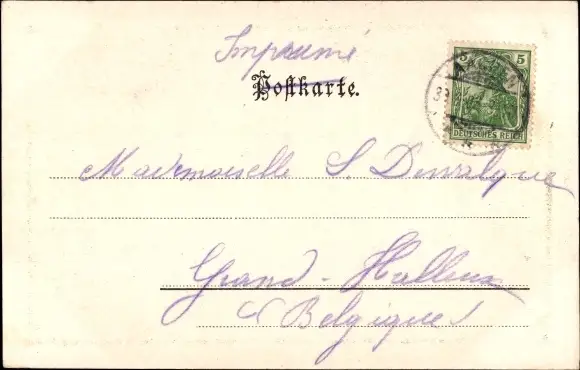 Imprimé
Postkarte.
5
DEUTSCHES REICH
Mademoiselle S. Dewalque
Grand-Halleux
(Belgique)